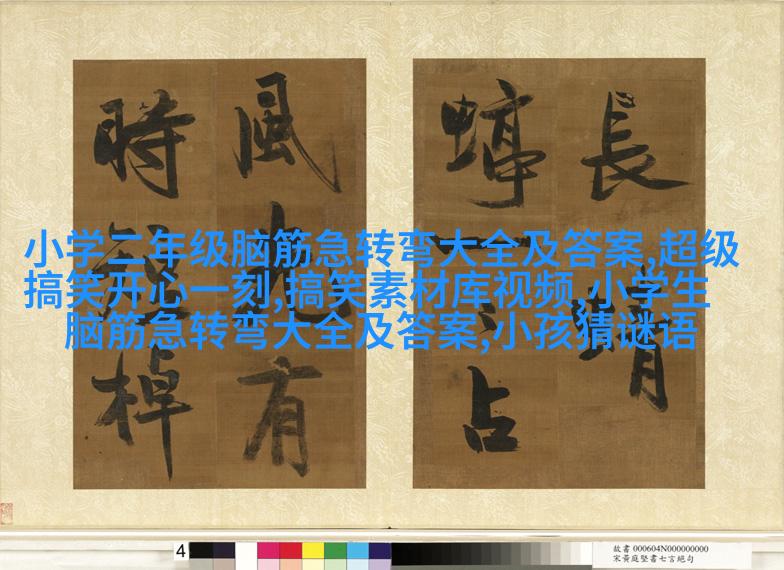 長蜻
蜓一〻占
風光有
時短棹
小学二年级脑筋急转弯大全及答案,超级
搞笑开心一刻,搞笑素材库视频,小学生
脑筋急转弯大全及答案,小孩猜谜语
4
故書 000604N000000000
宋黃庭堅書七言絕句